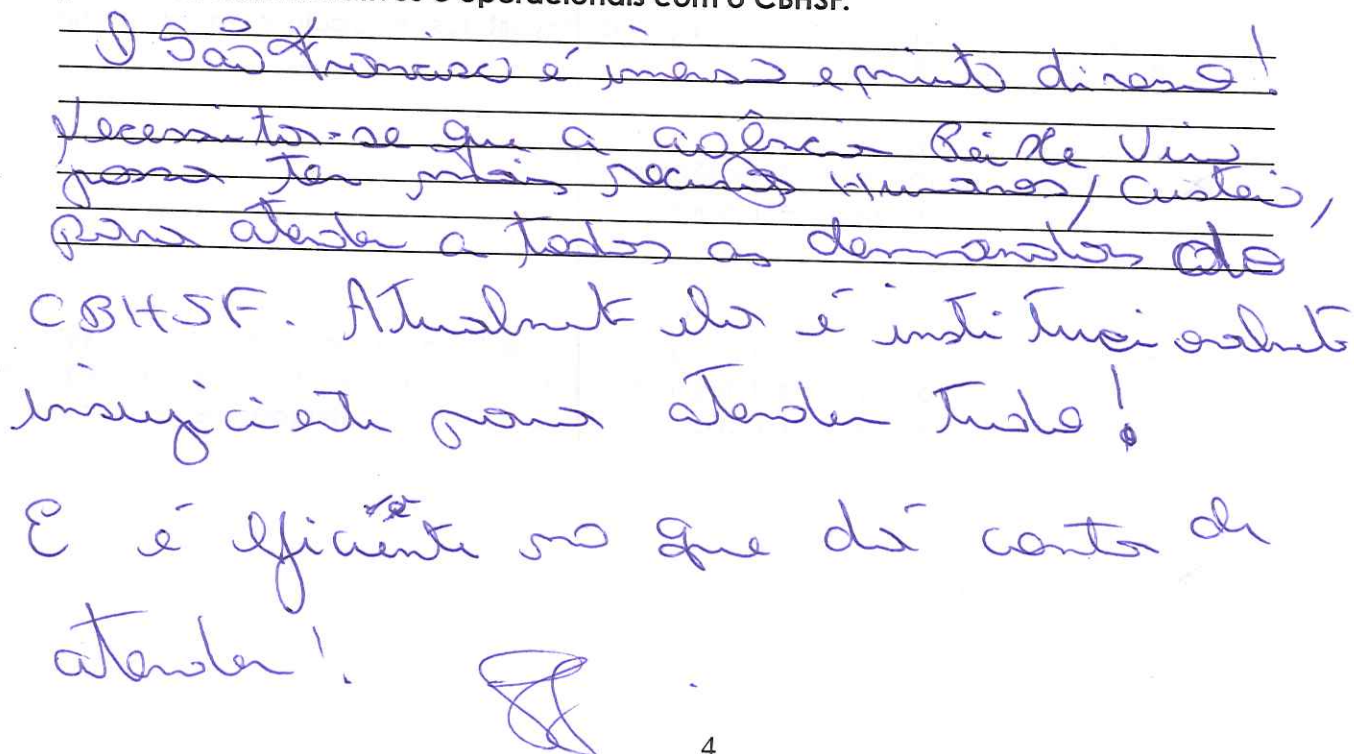 e operacionais com o CBHSF.
O São Francisco é imenso e muito diverso!
Necessita-se que a agência Peixe Vivo
possa ter mais recursos Humanos/custeio,
para atender a todas as demandas do
CBHSF. Atualmente ela é institucionalmente
insuficiente para atender tudo!
E é eficiente no que dá conta de
atender!
4